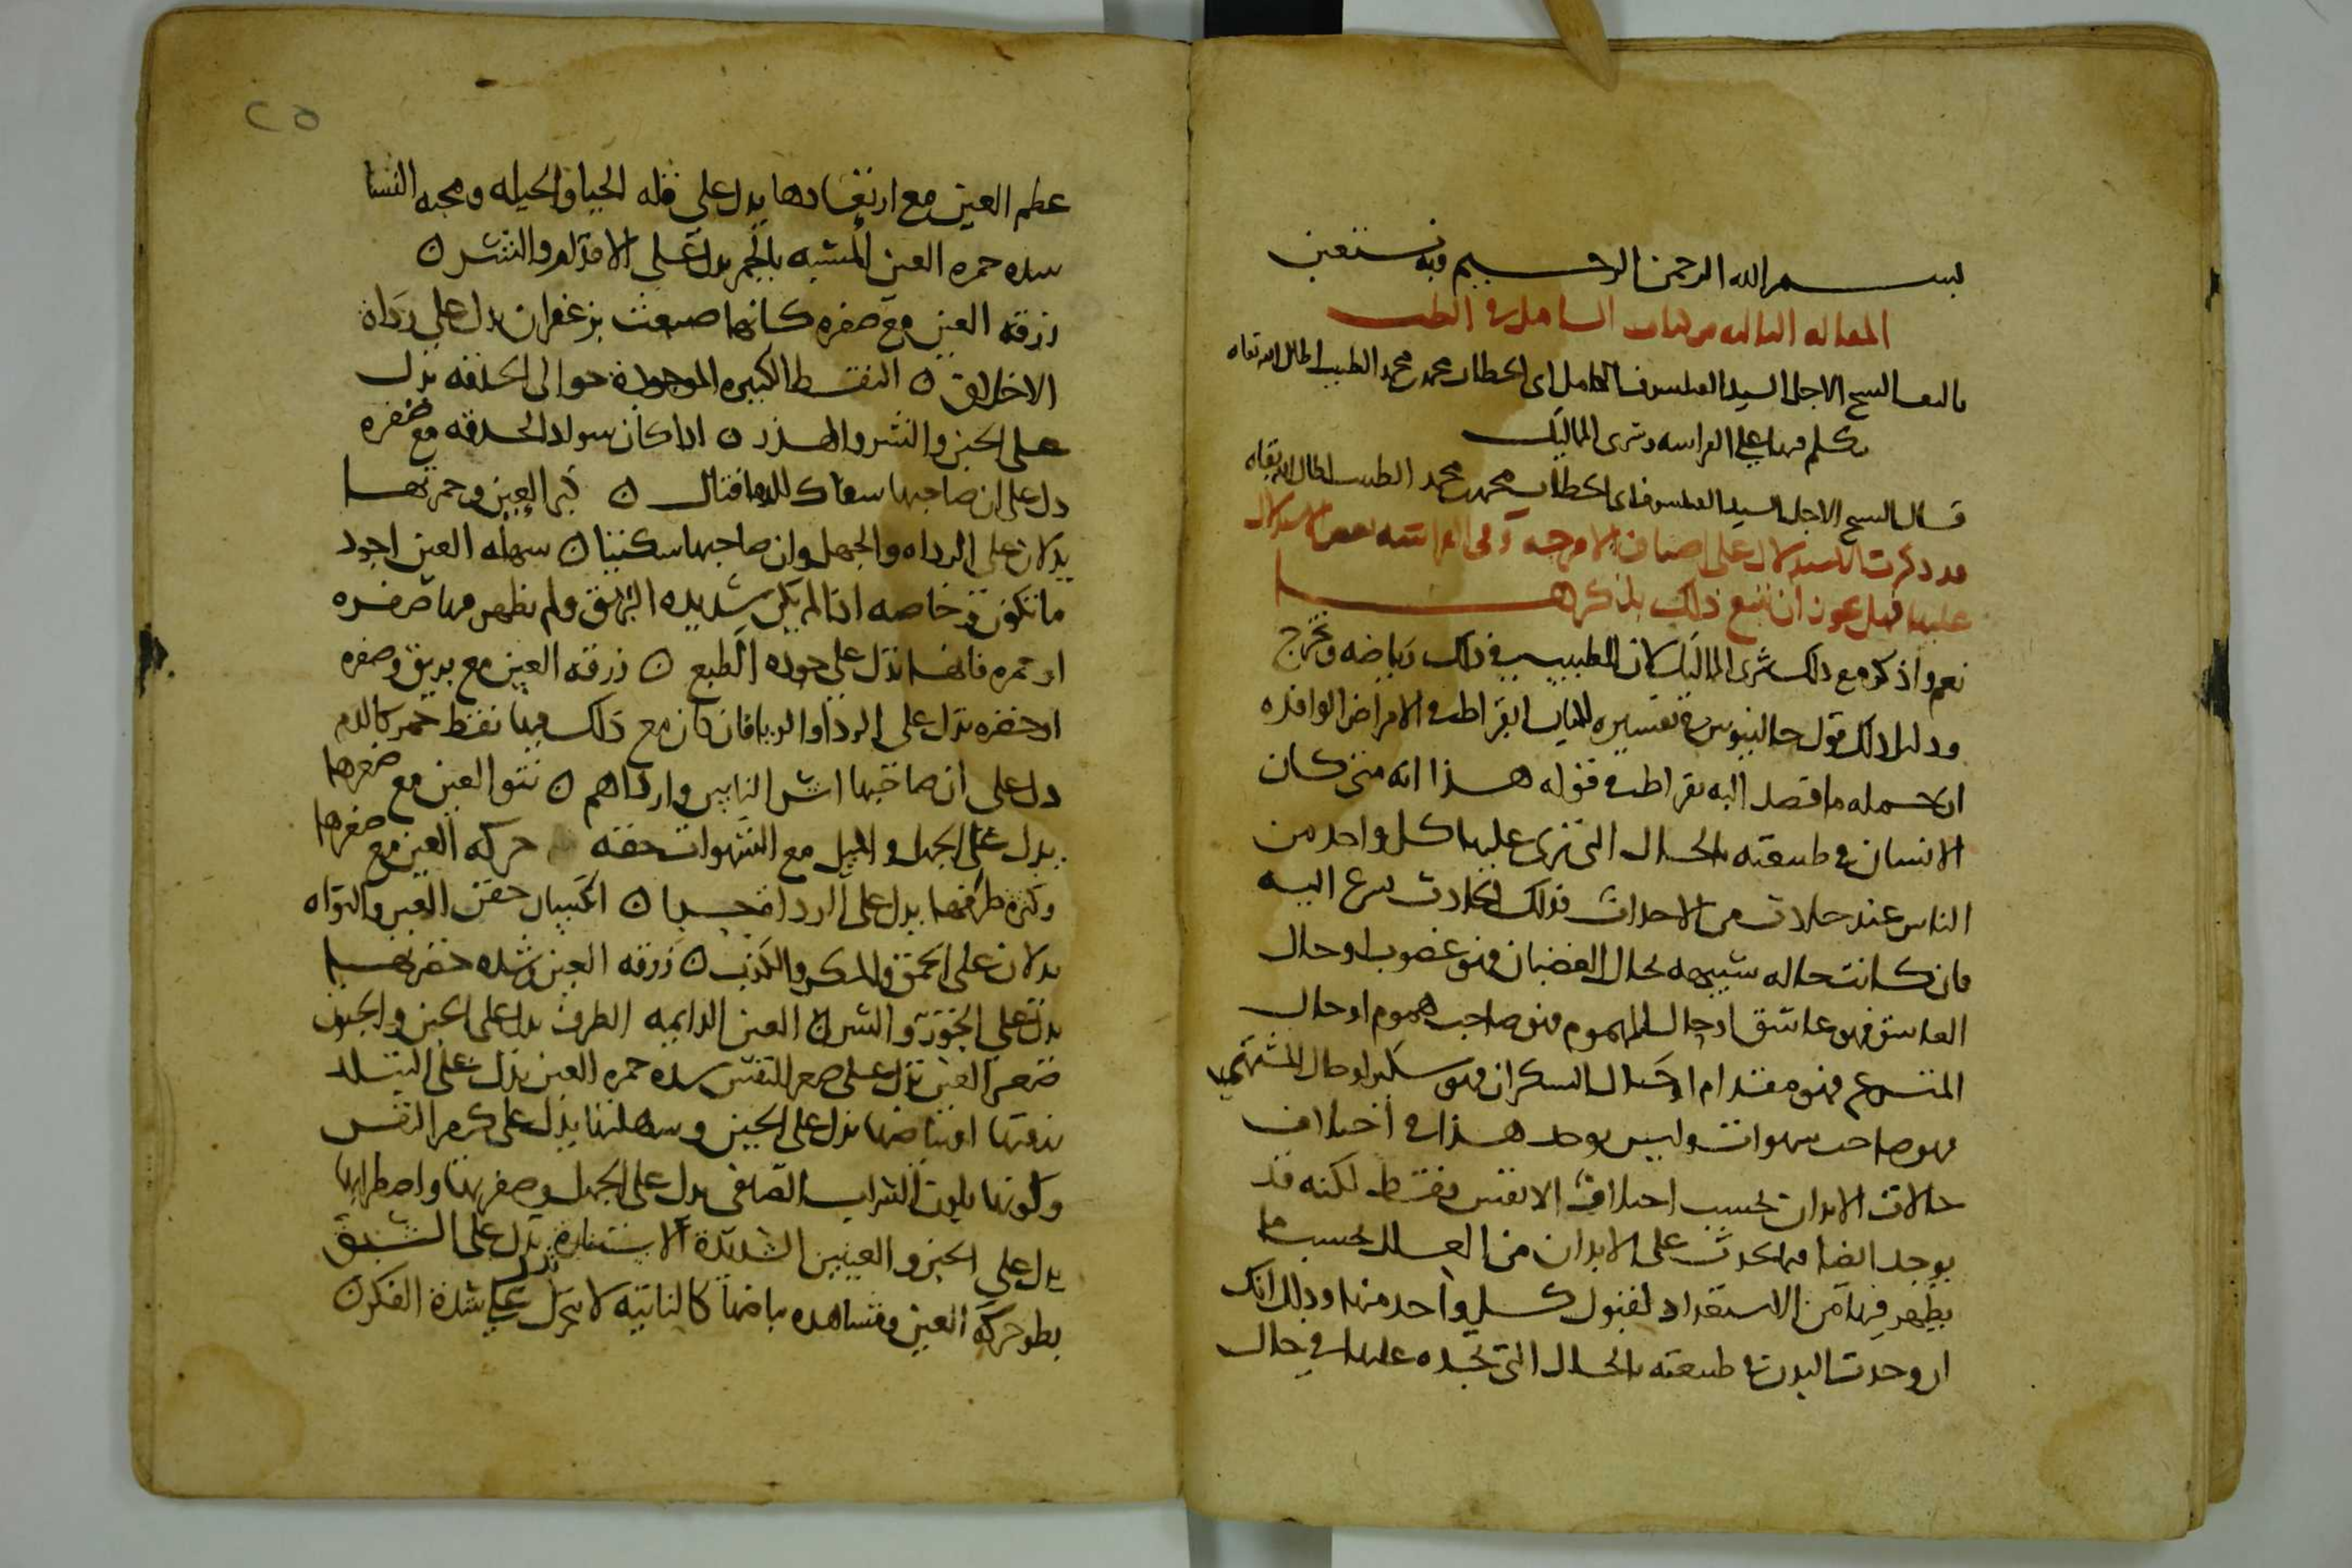 بسم الله الرحمن الرحيم وبه نستعين
المقاله الثالثه من كتاب الشامل في الطب
تاليف الشيخ الاجل السيد الفيلسوف الكامل ابى الخطاب محمد بن محمد الطبيب اطال الله بقاه
يتكلم فيها على الفراسه وشرى المماليك
قال الشيخ الاجل السيد الفيلسوف ابى الخطاب محمد بن محمد الطبيب اطال الله بقاه
قد ذكرت الاستدلال على اصناف الامزجه وفى الفراسه بعض الاستدلال
عليها فهل يجوز ان نتبع ذلك بذكرها
نعم واذكر مع ذلك شرى المماليك لان للطبيب في ذلك رياضه وتخرج
ودليل ذلك قول جالينوس في تفسيره لكتاب ابقراط في الامراض الوافده
ان جمله ما قصد اليه بقراط في قوله هذا انه متى كان
الانسان في طبيعته بالحال التي ترى عليها كل واحد من
الناس عند حالات من الاحداث فذلك الحادث يسرع اليه
فان كانت حاله شبيهه بحال الغضبان فهو غضوب او حال
العاشق فهو عاشق او حال المهموم فهو صاحب هموم او حال
المتسرع فهو مقدام او حال السكران فهو سكير او حال المشتهي
فهو صاحب شهوات وليس يوجد هذا في اختلاف
حالات الابدان بحسب اختلاف الانفس فقط لكنه قد
يوجد ايضا فيما يحدث على الابدان من العلل بحسب ما
يظهر فيها من الاستعداد لقبول كل واحد منها وذلك انك
ان وجدت البدن في طبيعته بالحال التي تجده عليها في حال
٢٥
عظم العين مع ارتعادها يدل على قله الحيا والحيله ومحبه النسا
شده حمره العين المشبه بالجمر يدل على الاقدام والشر ن
زرقه العين مع صفره كانها صبغت بزعفران يدل على رداة
الاخلاق ن النقط الكبيره الموجودة حوالى الحدقه تدل
على الجبن والشر والهذر ن اذا كان سواد الحدقه مع صفره
دل على ان صاحبها سفاك للدما قتال ن كبر العين وحمرتها
يدلان على الرداه والجهل وان صاحبها سكيتا ن شهله العين اجود
ما تكون وخاصه اذا لم يكن شديده البريق ولم يظهر فيها صفره
او حمره فانها تدل على جوده الطبع ن زرقه العين مع بريق وصفره
او خضره تدل على الرداو الريا فان كان مع ذلك فيها نقط حمر كالدم
دل على ان صاحبها اشر الناس وارداهم ن نتو العين مع صغرها
يدل على الجهل والميل مع الشهوات حركه العين مع صغرها
وكثره طرفها يدل على الردا ن انكسار جفن العين والتواه
يدلان على الحمق والمكر والكذب ن زرقه العين وشده خضرتها
يدل على الخور والشر ن العين الدايمه الطرف يدل على الجبن والجنون
صغر العين تدل على صغر النفس شده حمره العين تدل على
على الجبن وسهلتها يدل على كرم النفس
وكونها بلون الشراب الصافى يدل على الجهل وصغرهما واضطرابها
يدل على الجبن والعينين الشديدة الاستنارة تدل على الشبق
بطو حركه العين ومشاهده بياضها كالنابته لا تحرك تدل على شدة الفكر ن